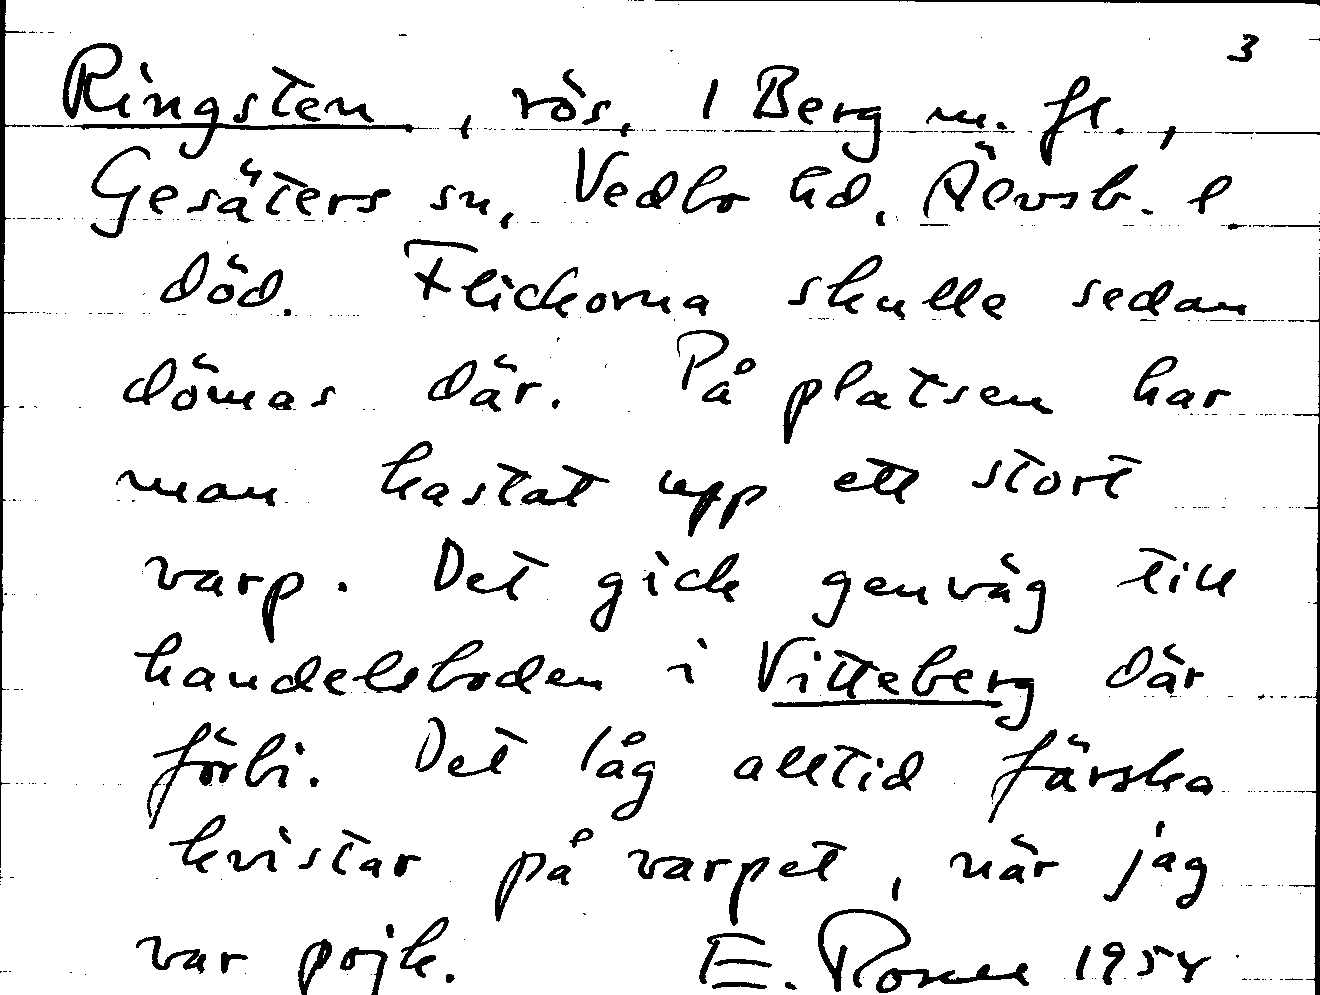 3
Ringsten, rös, 1 Berg m. fl.,
Gesäters sn, Vedbo hd, Älvsb. l.
död. Flickorna skulle sedan
dömas där. På platsen har
man kastat upp ett stort
varp. Det gick genväg till
handelsboden i Vitteberg där
förbi. Det låg alltid färska
kvistar på varpet, när jag
var pojk. E. 1954